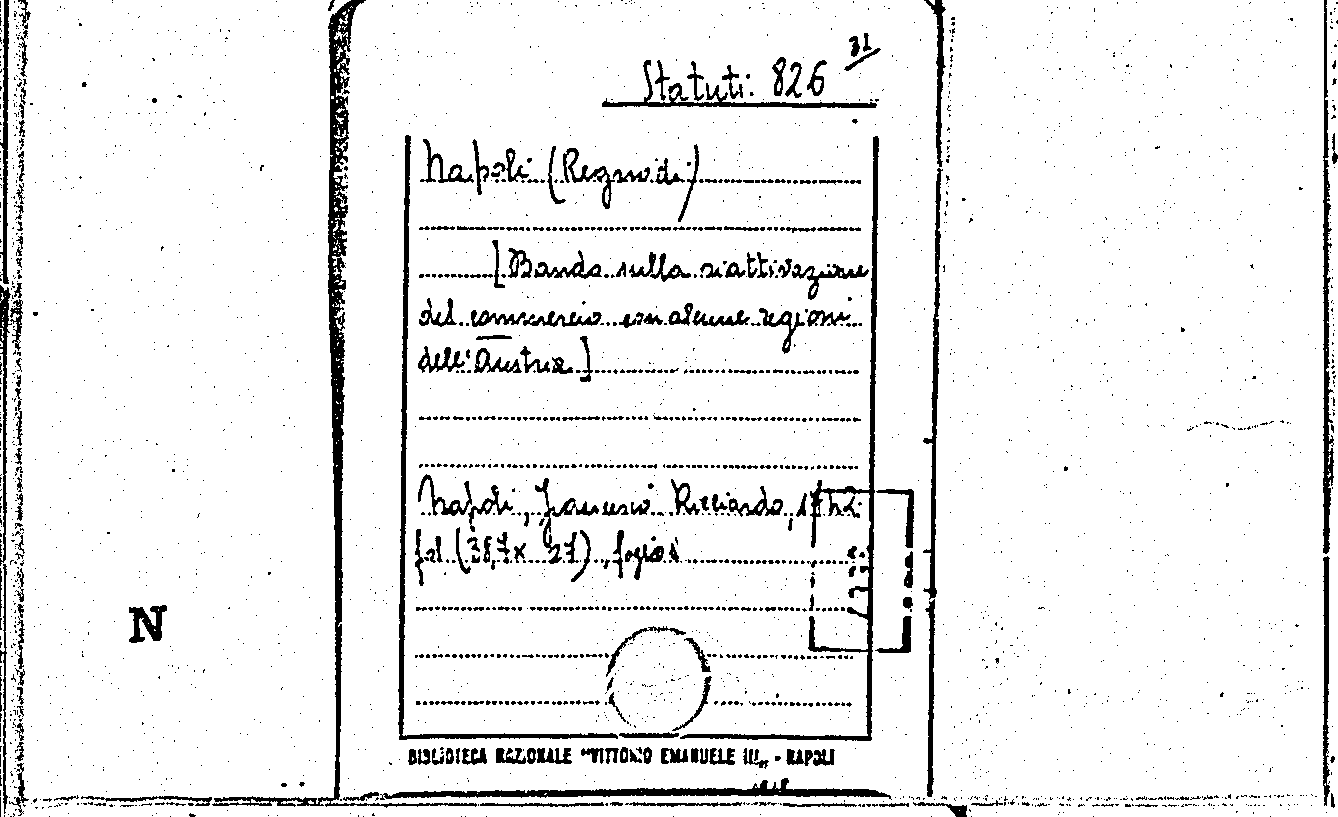 31
Statuti: 826
Napoli (Regno di)
[Bando sulla riattivazione
del commercio con alcune regioni
dell'Austria]
Napoli, Francesco Ricciardo, 1742
fol (38,7x 27), fogio 1
N
BIBLIOTECA NAZIONALE "VITTORIO EMANUELE III„ - NAPOLI